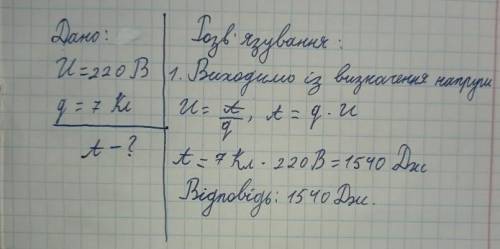 Дано:
U = 220 В
q = 7 Кл
A - ?
Розв'язування:
1. Виходимо із визначення напруги
U = A/q, A = q · U
A = 7 Кл · 220 В = 1540 Дж
Відповідь: 1540 Дж.